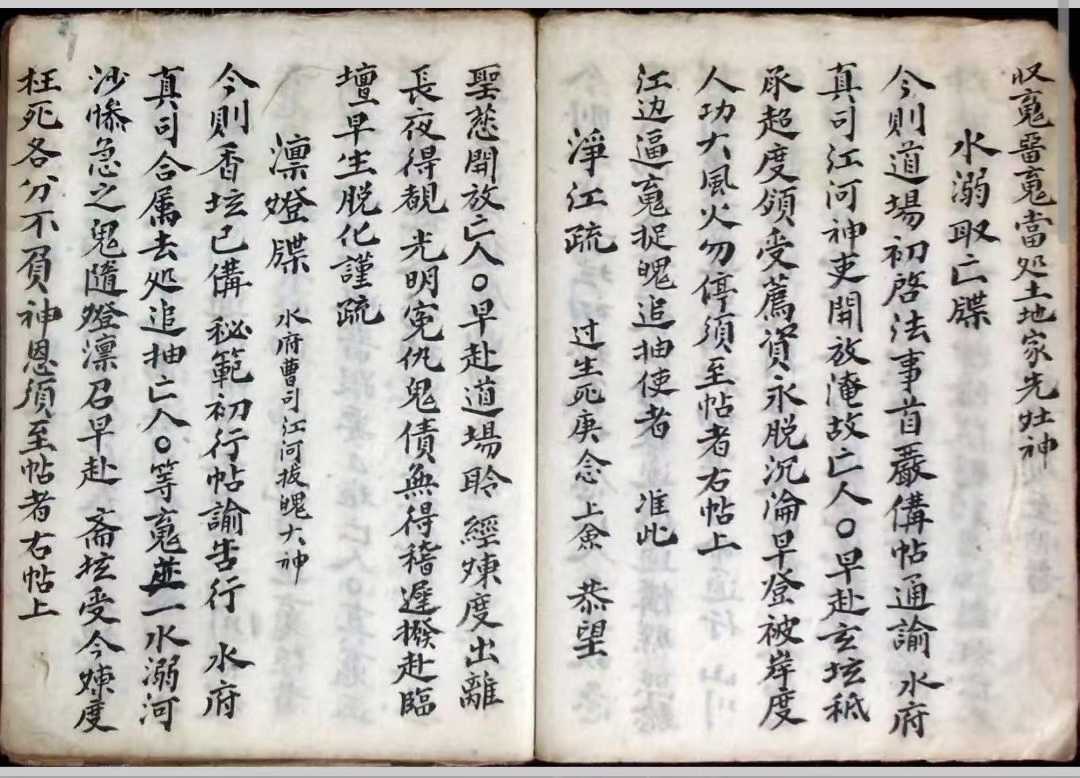 収𩲸𩳐𩲸當処土地家先灶神
水溺取亡牒
今則道場初啓法事首嚴備帖通諭 水府
真司江河神吏開放淹故亡人〇早赴玄坛秪
承超度領受薦資永脱沉淪早登被岸度
人功大風火勿停須至帖者右帖上
江边逼䰟捉魄追抽使者 准此
淨江疏 过生死庚念上叅 恭望
聖慈開放亡人〇早赴道場聆 經煉度出離
長夜得覩 光明寃仇鬼債無得稽遲撥赴臨
壇早生脱化謹疏
凛燈牒 水府曹司江河拔魄大神
今則香坛已備 秘範初行帖諭告行 水府
真司合属去処追抽亡人〇等䰟並一水溺河
沙惨急之鬼隨燈凛召早赴 斋坛受今煉度
枉死各分不負神恩須至帖者右帖上